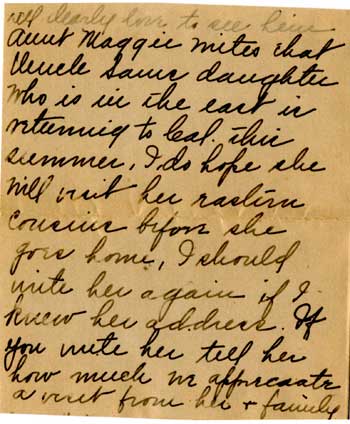 will dearly love to see him
Aunt Maggie writes that
Uncle Sams daughter
who is in the east is
returning to Cal. this
summer. I do hope she
will visit her eastern
cousins before she
goes home, I should
write her again if I
knew her address. If
you write her tell her
how much we appreciate
a visit from her + family